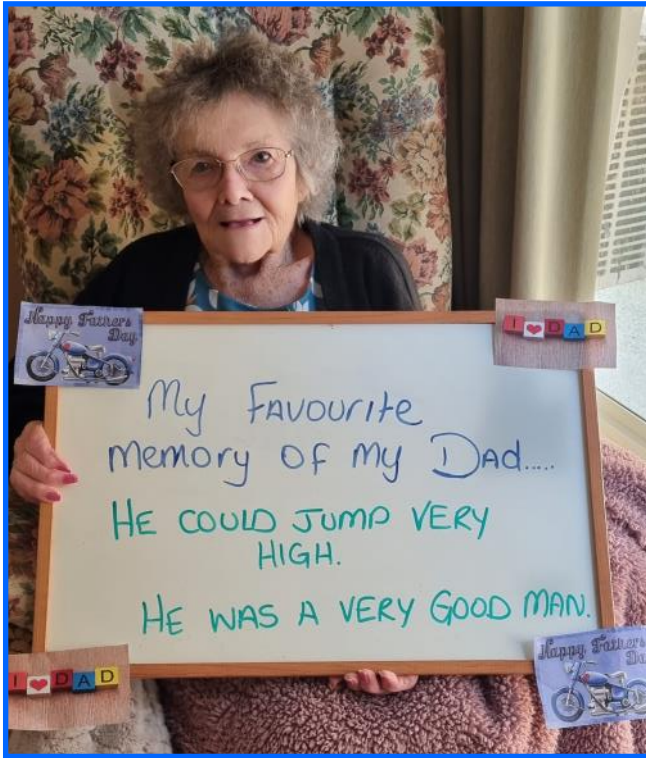 Happy Fathers
Day
I ❤ DAD
My FAVOURITE
memory OF my DAD.....
HE COULD JUMP VERY
HIGH.
HE WAS A VERY GOOD MAN.
I ❤ DAD
Happy Fathers
Da